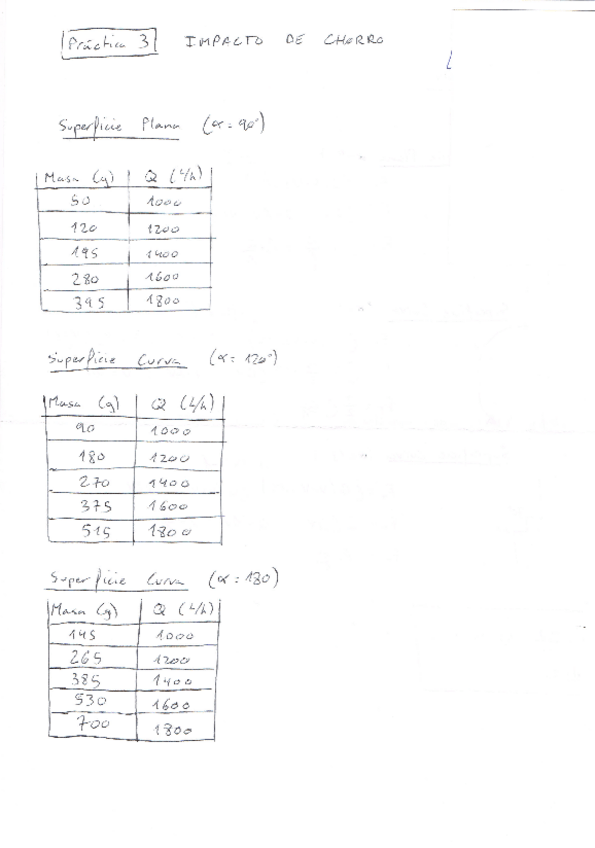 Práctica 3 IMPACTO DE CHORRO
Superficie Plana (α = 90°)
Masa (g) Q (L/h)
50 1000
120 1200
195 1400
280 1600
395 1800
Superficie Curva (α = 120°)
Masa (g) Q (L/h)
90 1000
180 1200
270 1400
375 1600
515 1800
Superficie Curva (α = 180)
Masa (g) Q (L/h)
145 1000
265 1200
385 1400
530 1600
700 1800